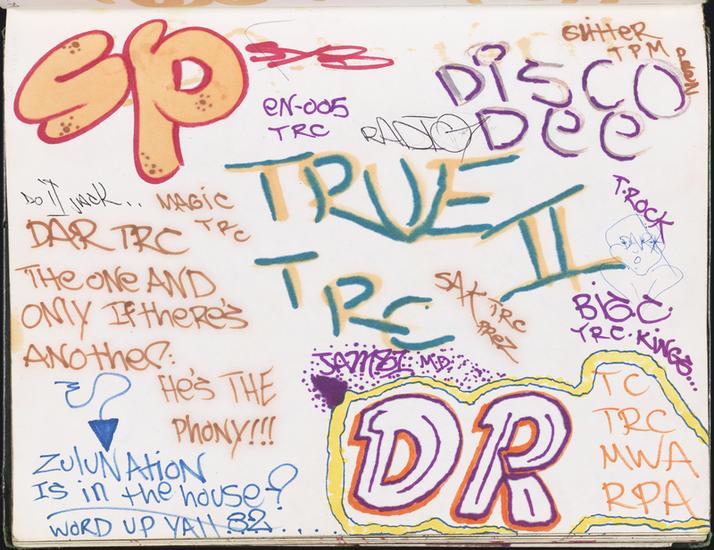 SP
GLITTER
TPM
DISCO
DEE
EN-005
TRC
RADIO
TRUE II
TRC
DO IT JACK..
MAGIC
TRC
DAR TRC
THE ONE AND
ONLY IF there's
ANOther:
He's THE
PhONY!!!
T.ROCK
DAR
SAK TRC
PREZ
BISC
TRC. KINGS..
JAMSI M.D.
ZULU NATION
IS in the house!
WORD UP YAH 82....
DR
TC
TRC
MWA
RPA